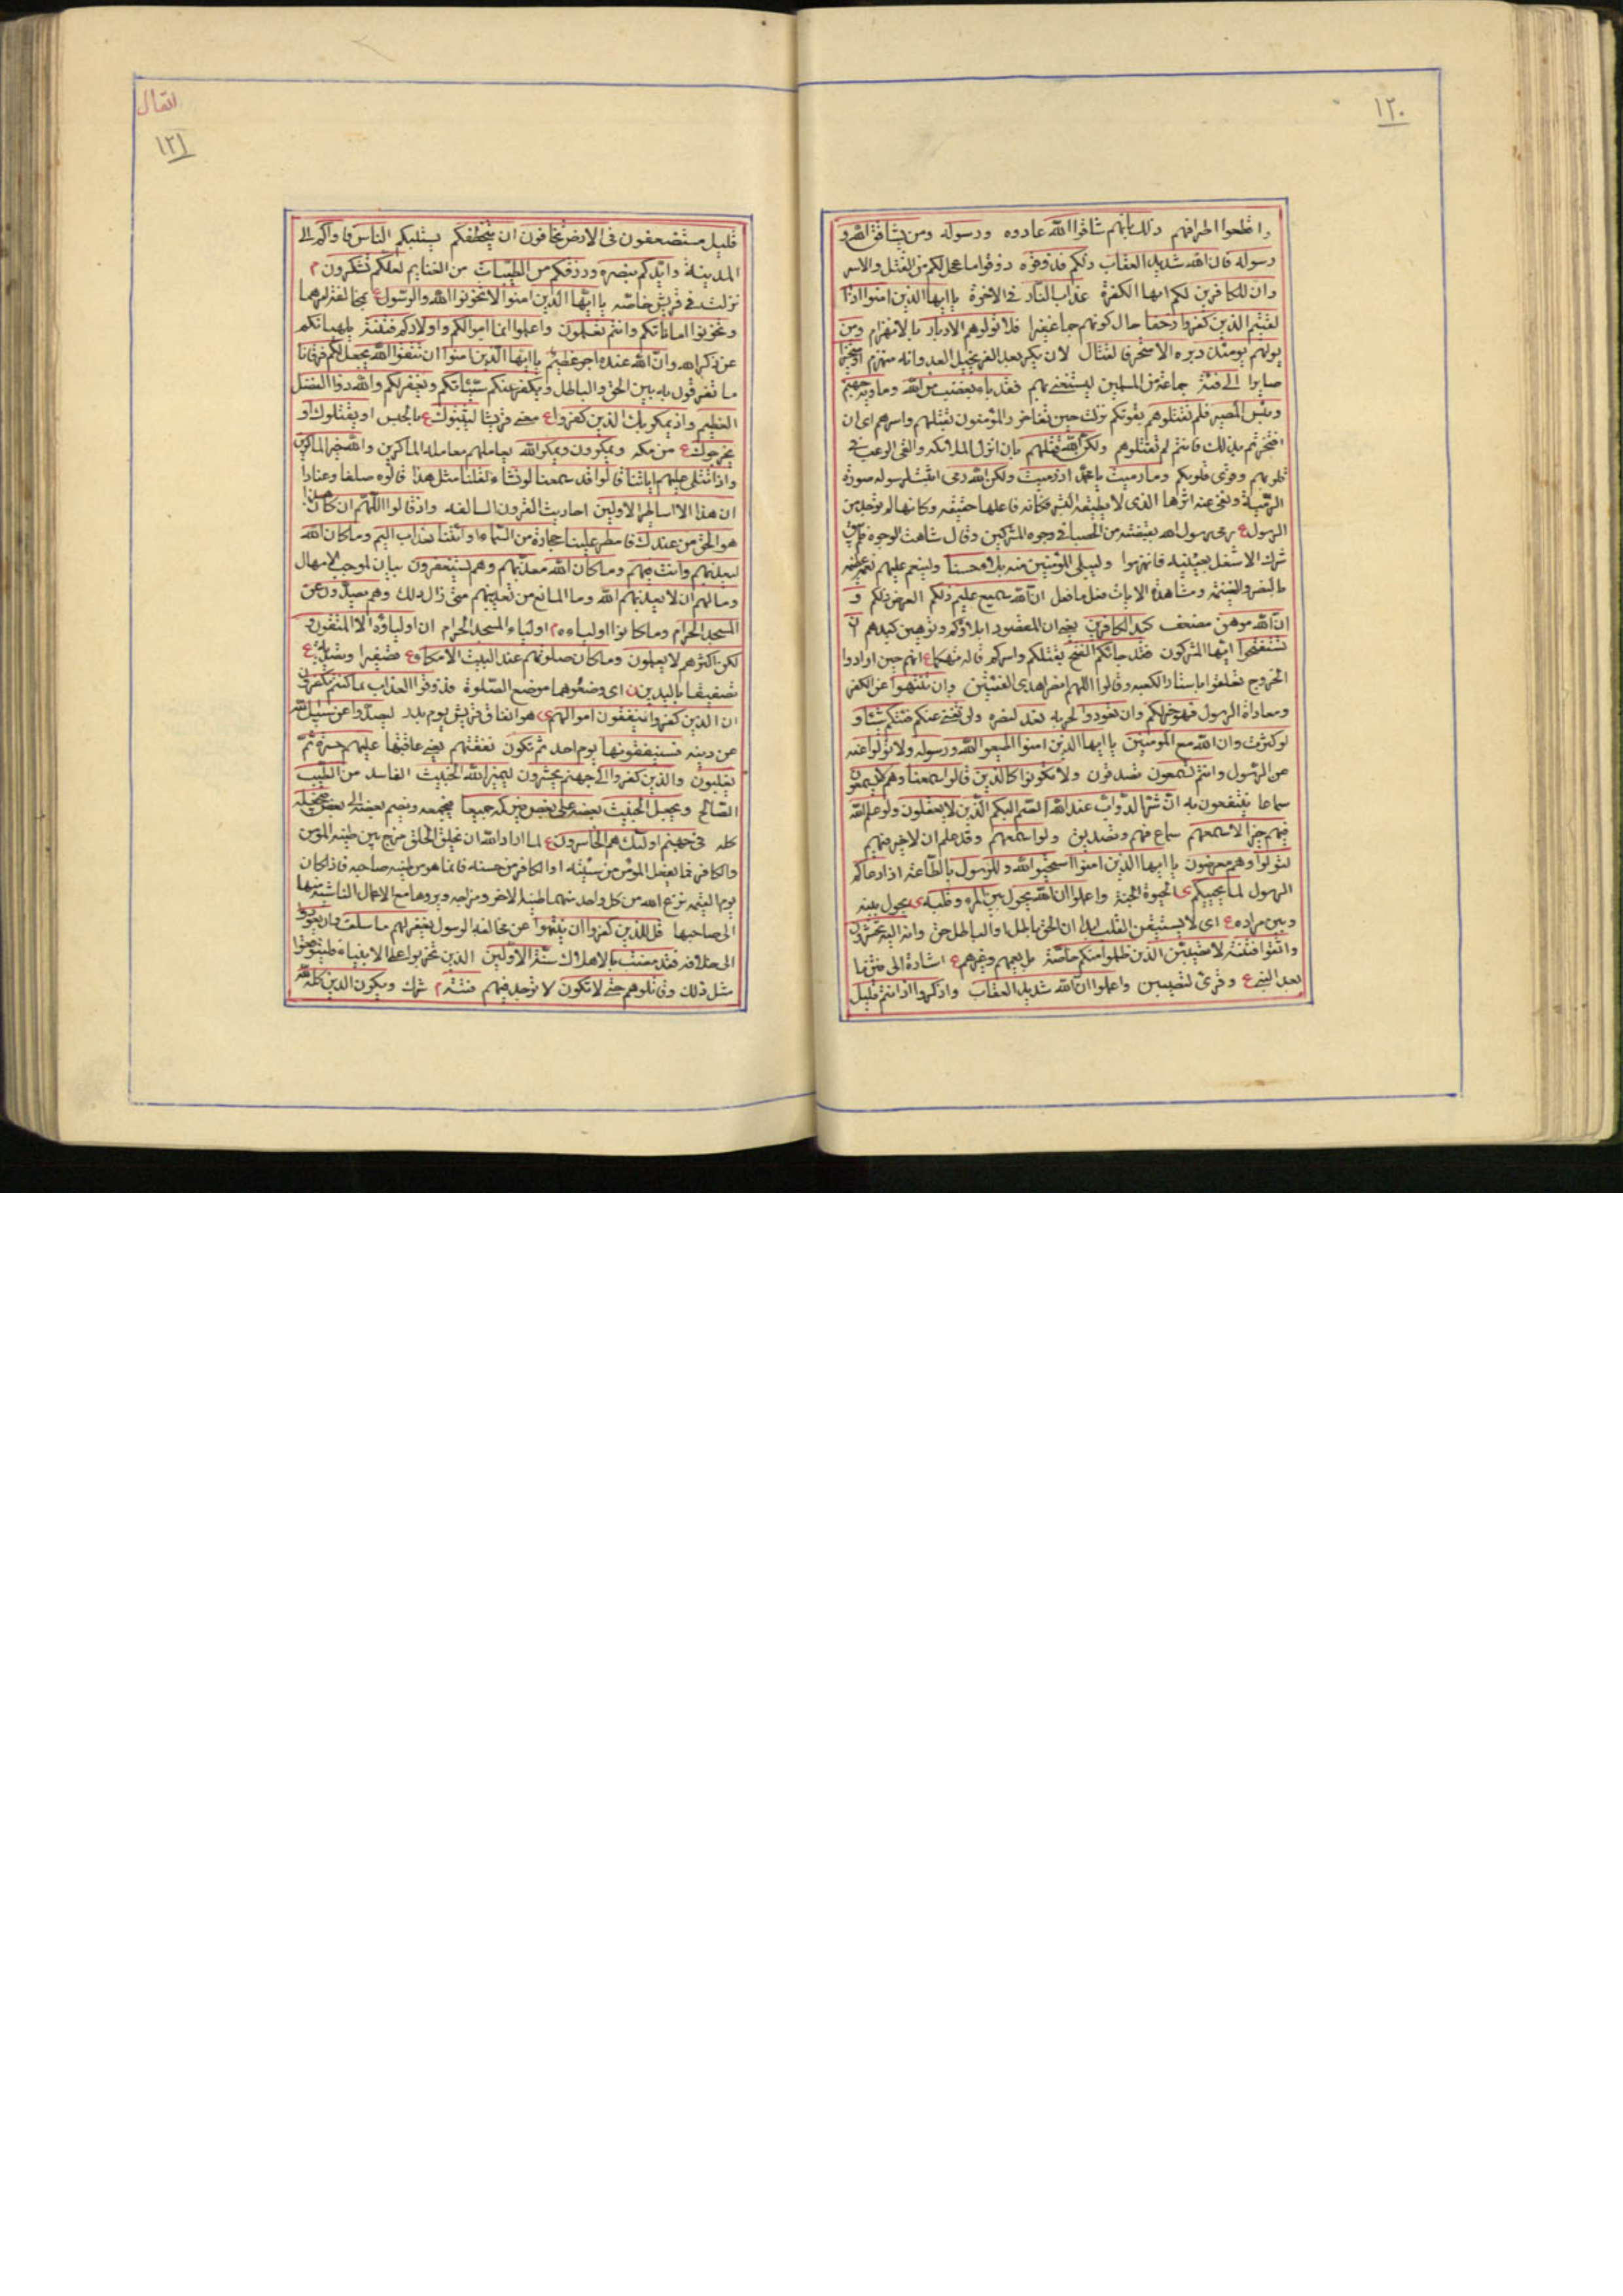 ١٢٠
واقطعوا اطرافهم ذلك بانهم شاقوا الله عادوه ورسوله ومن يشاقق الله و
رسوله فان الله شديد العقاب ذلكم فذوقوه ذوقوا ما عجل لكم من القتل والاسر
وان للكافرين لكم ايها الكفرة عذاب النار في الاخرة يا ايها الذين امنوا اذا
لقيتم الذين كفروا زحفا حال كونهم جما غفيرا فلا تولوهم الادبار بالانهزام ومن
يولهم يومئذ دبره الا متحرفا لقتال لان يكر بعد الفر يخيل العدو انه منهزم او متحيزا
صايرا الى فئة جماعة من المسلمين ليستغنى بهم فقد باء بغضب من الله وماويه جهنم
وبئس المصير فلم تقتلوهم بقوتكم نزلت حين تفاخر المؤمنون بقتلهم واسرهم اى ان
افتخرتم بذلك فانتم لم تقتلوهم ولكن الله قتلهم بان انزل الملائكة والقى الرعب في
قلوبهم وقوى قلوبكم وما رميت يا محمد اذ رميت ولكن الله رمى اثبت لرسوله صورة
الرمية ونفى عنه اثرها الذى لا يطيقه البشر فكانه فاعلها حقيقه وكانها لم توجد من
الرسول ع رمى رسول الله بقبضة من الحصباء في وجوه المشركين وقال شاهت الوجوه فلم يبق
شرك الا شغل بعينيه فانهزموا وليبلى المؤمنين منه بلاء حسنا ولينعم عليهم نعمة عظيمة
بالنصر والغنيمة ومشاهدة الايات فعل ما فعل ان الله سميع عليم ذلكم الغرض ذلكم و
ان الله موهن مضعف كيد الكافرين يعنى ان المقصود ابلاؤكم وتوهين كيدهم ان
تستفتحوا ايها المشركون فقد جائكم الفتح بقتلكم واسركم قاله تهكما ع انهم حين ارادوا
الخروج تعلقوا باستار الكعبه وقالوا اللهم انصر اهدى الفئتين وان تنتهوا عن الكفر
ومعاداة الرسول فهو خير لكم وان تعودوا لحربه نعد لنصره ولن تغنى عنكم فئتكم شيئا و
لو كثرت وان الله مع المؤمنين يا ايها الذين امنوا اطيعوا الله ورسوله ولا تولوا عنه
عن الرسول وانتم تسمعون تصدقون ولا تكونوا كالذين قالوا سمعنا وهم لا يسمعون
سماعا ينتفعون به ان شر الدواب عند الله الصم البكم الذين لا يعقلون ولو علم الله
فيهم خيرا لاسمعهم سماع فهم وتصديق ولو اسمعهم وقد علم ان لا خير فيهم
لتولوا وهم معرضون يا ايها الذين امنوا استجيبوا لله وللرسول بالطاعة اذا دعاكم
الرسول لما يحييكم ى الحيوة الجنة واعلموا ان الله يحول بين المرء وقلبه ى يحول بينه
وبين مراده ع اى لا يستيقن القلب ابدا ان الحق باطل او الباطل حق وانه اليه تحشرون
واتقوا فتنة لا تصيبن الذين ظلموا منكم خاصة بل يعمهم وغيرهم ع اشارة الى
بعد النبى ع وقرئ لتصيبن واعلموا ان الله شديد العقاب واذكروا اذ انتم قليل
انفال
١٢١
قليل مستضعفون في الارض تخافون ان يتخطفكم يستلبكم الناس فاواكم الى
المدينة وايدكم بنصره ورزقكم من الطيبات من الغنايم لعلكم تشكرون م
نزلت في قريش خاصه يا ايها الذين امنوا لا تخونوا الله والرسول ع بمخالفة امرهما
وتخونوا اماناتكم وانتم تعلمون واعلموا انما اموالكم واولادكم فتنة يلهيانكم
عن ذكر الله وان الله عنده اجر عظيم يا ايها الذين امنوا ان تتقوا الله يجعل لكم فرقانا
ما تفرقون به بين الحق والباطل ويكفر عنكم سيئاتكم ويغفر لكم والله ذوا الفضل
العظيم واذ يمكر بك الذين كفروا ع معنى قريشا ليثبتوك ع بالحبس او يقتلوك او
يخرجوك ع من مكه ويمكرون ويمكر الله يعاملهم معاملة الماكرين والله خير الماكرين
واذا تتلى عليهم اياتنا قالوا قد سمعنا لو نشاء لقلنا مثل هذا قالوه صلفا وعنادا
ان هذا الا اساطير الاولين احاديث القرون السالفه واذ قالوا اللهم ان كان هذا
هو الحق من عندك فامطر علينا حجارة من السماء او ائتنا بعذاب اليم وما كان الله
ليعذبهم وانت فيهم وما كان الله معذبهم وهم يستغفرون بيان لموجب الامهال
وما لهم ان لا يعذبهم الله وما المانع من تعذيبهم متى زال ذلك وهم يصدون عن
المسجد الحرام وما كانوا اولياءه م اولياء المسجد الحرام ان اولياؤه الا المتقون و
لكن اكثرهم لا يعلمون وما كان صلوتهم عند البيت الا مكاء ع صفيرا وتصدية ع
تصفيقا باليدين ن اى وضعوهما موضع الصلوة فذوقوا العذاب بما كنتم تكفرون
ان الذين كفروا ينفقون اموالهم ى هو انفاق قريش يوم بدر ليصدوا عن سبيل الله
عن دينه فسينفقونها يوم احد ثم تكون نفقتهم يعنى عاقبتها عليهم حسرة ثم
يغلبون والذين كفروا الى جهنم يحشرون ليميز الله الخبيث الفاسد من الطيب
الصالح ويجعل الخبيث بعضه على بعض فيركمه جميعا فيجمعه ويضم بعضه الى بعض فيجعله
كله في جهنم اولئك هم الخاسرون ع لما اراد الله ان يخلق الخلق مزج بين طينة المؤمن
والكافر فما يفعل المؤمن من سيئة او الكافر من حسنه فانما هو من طينه صاحبه فاذا كان
يوم القيمه نزع الله من كل واحد منهما طينة الاخر ومزاجه ويردها مع الاعمال الناشئة منها
الى صاحبها قل للذين كفروا ان ينتهوا عن مخالفة الرسول يغفر لهم ما سلف وان يعودوا
الى خلافه فقد مضت بالاهلاك سنة الاولين الذين تحزبوا على الانبياء فليتوقعوا
مثل ذلك وقاتلوهم حتى لا تكون لا توجد فيهم فتنة م شرك ويكون الدين كله لله